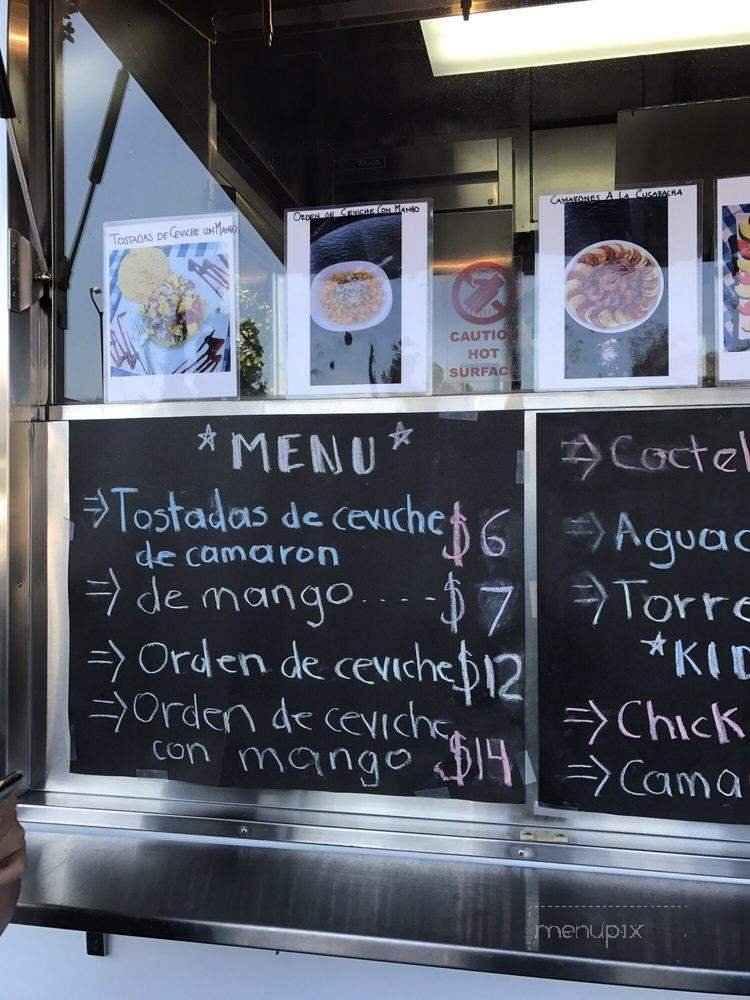 TOSTADAS DE CEVICHE CON MANGO
ORDEN DE CEVICHE CON MANGO
CAMARONES A LA CUCARACHA
CAUTIO
HOT
SURFAC
*MENU*
⇒ Tostadas de ceviche
de camaron $6
⇒ de mango....-$7
⇒ Orden de ceviche $12
⇒ Orden de ceviche
con mango $14
⇒ Coctel
⇒ Aguac
⇒ Torre
*KID
⇒ Chick
⇒ Cama
menupix